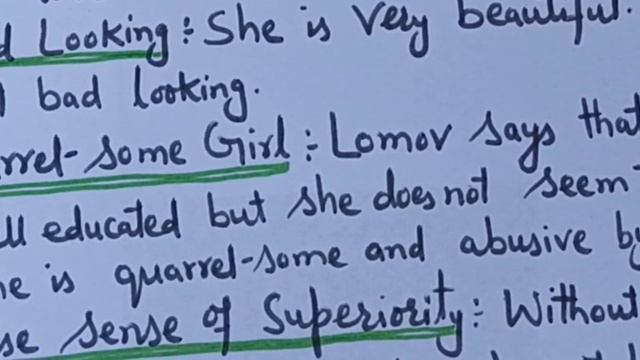 Looking :- She is very beautiful.
bad looking.
rrel-some Girl :- Lomov says that
ll educated but she does not seem
e is quarrel-some and abusive by
se sense of Superiority :- Without